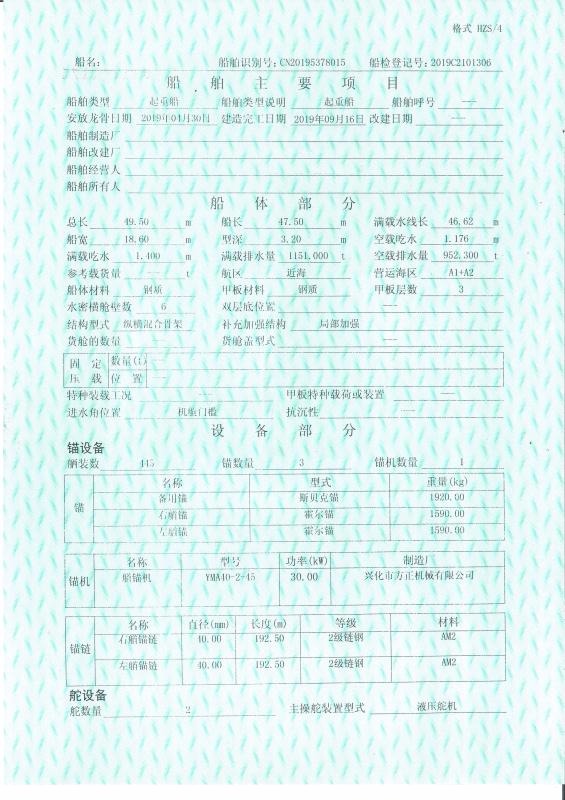 格式 HZS/4
船名: 船舶识别号: CN20195378015 船检登记号: 2019C2101306
船 舶 主 要 项 目
船舶类型 起重船 船舶类型说明 起重船 船舶呼号 ---
安放龙骨日期 2019年04月30日 建造完工日期 2019年09月16日 改建日期 ---
船舶制造厂
船舶改建厂
船舶经营人
船舶所有人
船 体 部 分
总长 49.50 m 船长 47.50 m 满载水线长 46.62 m
船宽 18.60 m 型深 3.20 m 空载吃水 1.176 m
满载吃水 1.400 m 满载排水量 1151.000 t 空载排水量 952.300 t
参考载货量 --- t 航区 近海 营运海区 A1+A2
船体材料 钢质 甲板材料 钢质 甲板层数 3
水密横舱壁数 6 双层底位置 ---
结构型式 纵横混合骨架 补充加强结构 局部加强
货舱的数量 --- 货舱盖型式 ---
固 定 数量(t) ---
压 载 位 置 ---
特种装载工况 --- 甲板特种载荷或装置 ---
进水角位置 机舱门槛 抗沉性 ---
设 备 部 分
锚设备
舾装数 445 锚数量 3 锚机数量 1
名称 型式 重量(kg)
锚
备用锚 斯贝克锚 1920.00
右艏锚 霍尔锚 1590.00
左艏锚 霍尔锚 1590.00
名称 型号 功率(kW) 制造厂
锚机 艏锚机 YMA40-2-45 30.00 兴化市方正机械有限公司
名称 直径(mm) 长度(m) 等级 材料
锚链
右艏锚链 40.00 192.50 2级链钢 AM2
左艏锚链 40.00 192.50 2级链钢 AM2
舵设备
舵数量 2 主操舵装置型式 液压舵机